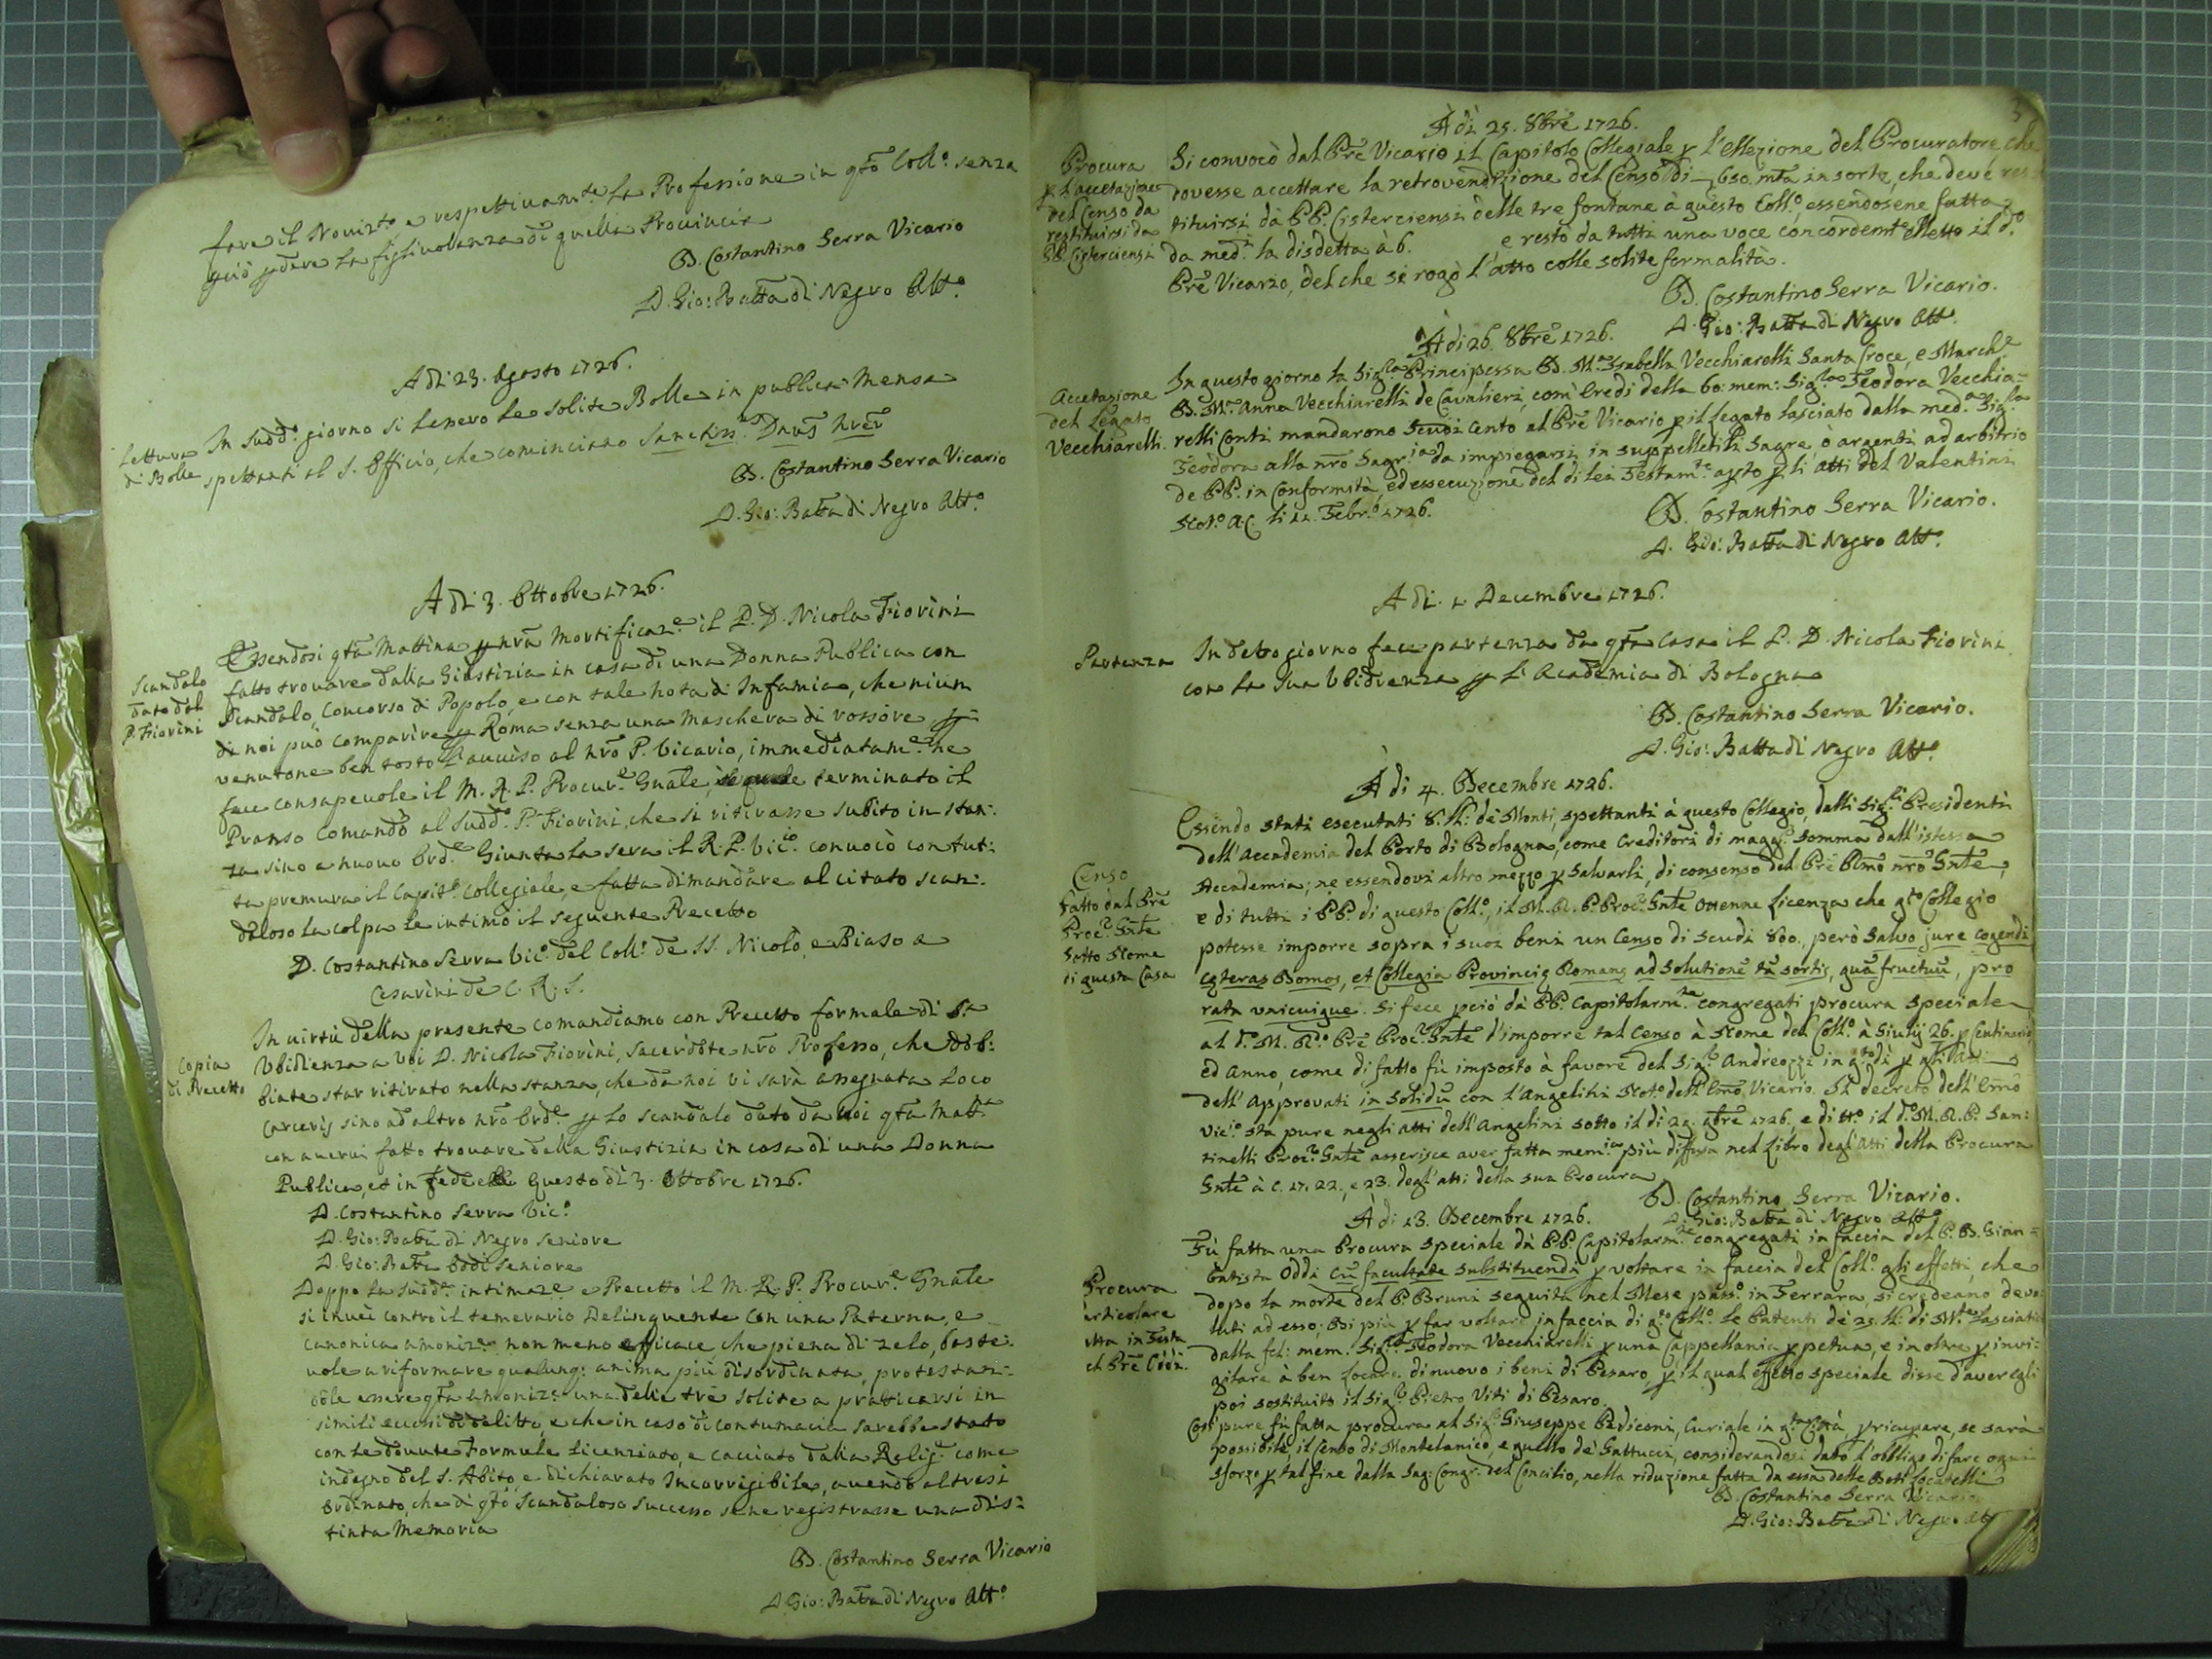 fare il Noviz.to, e respettivam.te la Professione in q̄to Coll.o senza
però perdere la figliuolanza di quella Provincia
D. Costantino Serra Vicario
D. Gio: Batta di Negro Att.o
A dì 23. Agosto 1726.
Lettura
di Bolle
In sudd.o giorno si lessero le solite Bolle in publica Mensa
spettanti al S. Officio, che cominciano Sanctiss.us Dnus nr̄
D. Costantino Serra Vicario
D. Gio: Batta di Negro Att.o
A dì 3. Ottobre 1726.
Scandalo
dato dal
P. Fiorini
Essendosi q̄ta Mattina p nr̄a Mortificaz.e il P. D. Nicola Fiorini
fatto trovare dalla Giustizia in casa di una Donna Publica con
scandalo, Concorso di Popolo, e con tale nota di Infamia, che niun
di noi può comparire p Roma senza una Maschera di rossore, per-
venutone ben tosto l'avviso al nr̄o P. Vicario, immediatam.e ne
fece consapevole il M. R. P. Procur.e Gnāle, terminato il
Pranso comandò al sudd.o P. Fiorini, che si ritirasse subito in stan:
za sino a nuovo ord.e Giunta la sera il R. P. Vic.io convocò con tut:
ta premura il Capit.o Collegiale, e fatta dimandare al citato scan:
daloso la colpa le intimò il seguente Precetto
D. Costantino Serra Vic.o del Coll.o de SS. Nicolò, e Biaso a
Cesarini de C. R. S.
Copia
di Precetto
In virtù della presente comandiamo con Precetto formale di S.ta
Ubidienza a Voi D. Nicola Fiorini, Sacerdote nr̄o Professo, che dob:
biate star ritirato nella stanza, che da noi vi sarà assegnata Loco
Carceris sino ad altro nr̄o ord.e p lo scandalo dato da voi q̄ta Matt.a
con avervi fatto trovare dalla Giustizia in casa di una Donna
Publica, et in fede questo dì 3. Ottobre 1726.
D. Costantino Serra Vic.o
D. Gio: Batta di Negro Seniore
D. Gio: Batta Oddi Seniore
Doppo la sudd.a intimaz.e e Precetto il M. R. P. Procur.e Gnāle
si inveì contro il temerario Delinquente con una Paterna, e
canonica amoniz.e non meno efficace che piena di zelo, baste:
vole a riformare qualunq: anima più disordinata, protestan:
dole essere q̄ta amoniz.e una delle tre solite a pratticarsi in
simili eccessi di delitto, e che in caso di contumacia sarebbe stato
con le dovute Formule licenziato, e cacciato dalla Relig.e come
indegno del S. Abito, e dichiarato Incorrigibile, avendo altresì
ordinato, che di q̄to scandaloso successo se ne registrasse una dis:
tinta Memoria
D. Costantino Serra Vicario
D. Gio: Batta di Negro Att.o
3
À dì 25. 8brē 1726.
Procura
p l'accetazione
del Censo da
restituirsi da
PP. Cisterciensi
Si convocò dal Prē Vicario il Capitolo Collegiale p l'ellezione del Procuratore, che
dovesse accettare la retrovendizione del Censo di 650. mta in sorte, che deve res
tituirsi dà PP. Cisterciensi delle tre fontane à questo Coll.o, essendosene fatta
da med.i la disdetta à 6. e restò da tutti una voce concordem.te elletto il d.o
Prē Vicario, del che si rogò l'atto colle solite formalità.
D. Costantino Serra Vicario.
D. Gio: Batta di Negro Att.o
À dì 26. 8brē 1726.
Accetazione
del Legato
Vecchiarelli.
In questo giorno la Sig.ra Principessa D. M.a Isabella Vecchiarelli Santa Croce, e March.e
D. M.a Anna Vecchiarelli de Cavalieri, com'Eredi della bo: mem: Sig.ra Teodora Vecchia=
relli Conti mandarono Scudi Cento al Prē Vicario p il Legato lasciato dalla med.a Sig.ra
Teodora alla nrā Sagr.ia da impiegarsi in suppelletili Sagre, ò argenti ad arbitrio
de PP. in conformità, ed essecuzione del di lei Testam.to ap̄to p li atti del Valentini
Not.o A.C. li 11. Febr.o 1726.
D. Costantino Serra Vicario.
D. Gio: Batta di Negro Att.o
A dì. 1 Decembre 1726.
Partenza
In detto giorno fece partenza da q̄ta Casa il P. D. Nicola Fiorini
con la sua Ubidienza p L'Academia di Bologna
D. Costantino Serra Vicario.
D. Gio: Batta di Negro Att.o
À dì 4. Decembre 1726.
Censo
fatto dal Prē
Proc.e Gnlē
sotto Nome
di questa Casa
Essendo stati esecutati 8. LL: de Monti, spettanti à questo Collegio, dalli Sig.ri Presidenti
dell'Accademia del Porto di Bologna, come Creditori di magg.r somma dall'istessa
Accademia; ne essendovi altro mezzo p salvarli, di consenso del Prē Rmō nrō Gnlē,
e di tutti i PP. di questo Coll.o, il M. R. P. Proc.e Gnlē ottenne licenza che q̄to Collegio
potesse imporre sopra i suoi beni un Censo di Scudi 800., però salvo jure cogendi
cęteras Domos, et Collegia Provincię Romanę ad solutionē tā sortis, quā fructuū, pro
rata unicuique. Si fece pciò dà PP. Capitolarm.te congregati procura speciale
al d.o M. R.do Prē Proc.e Gnlē d'imporre tal Censo à Nome del Coll.o à Giulij 26. p Centinario
ed Anno, come di fatto fù imposto à favore del Sig.r Andreozzi in q.to dì p gl'Atti
dell'Approvati in solidū con l'Angelini Not.o dell'Emō Vicario. Il decreto dell'Emō
Vic.o sta pure negli atti dell'Angelini sotto il dì 29. 9brē 1726, e di tt.o il d.o M. R. P. San:
tinelli Proc.e Gnlē asserisce aver fatta mem.ia più diffusa nel Libro degl'Atti della Procura
Gnlē à c. 17. 22., e 23. degl'atti della sua Procura
D. Costantino Serra Vicario.
À dì 13. Decembre 1726.
D. Gio: Batta di Negro Att.o
Procura
articolare
atta in Testa
el Prē Oddi.
Fù fatta una Procura speciale dà PP. Capitolarm.te congregati in faccia del P. D. Gian=
batista Oddi cū facultate substituendi p voltare in faccia del Coll.o gli effetti, che
dopo la morte del P. Bruni seguita nel Mese pass.o in Ferrara, si credeano devo
luti ad esso; Di più p far voltare in faccia di q.o Coll.o le Patenti de 25. LL: di M.te lasciati
dalla fel: mem: Sig.ra Teodora Vecchiarelli p una Cappellania p petua, e inoltre p invi:
gilare à ben locare di nuovo i beni di Pesaro, p il qual effetto speciale disse d'aver egli
poi sostituito il Sig.r Pietro Viti di Pesaro.
Così pure fù fatta procura al Sig.r Giuseppe Pediconi, Curiale in q.ta Città p ricuperare, se sarà
possibile, il Censo di Montelanico, e quello de' Gattucci, considerandosi dato l'obbligo di fare ogni
sforzo p tal fine dalla Sag: Congr. del Concilio, nella riduzione fatta da essa delle Doti Locatelli
D. Costantino Serra Vicario
D. Gio: Batta di Negro Att